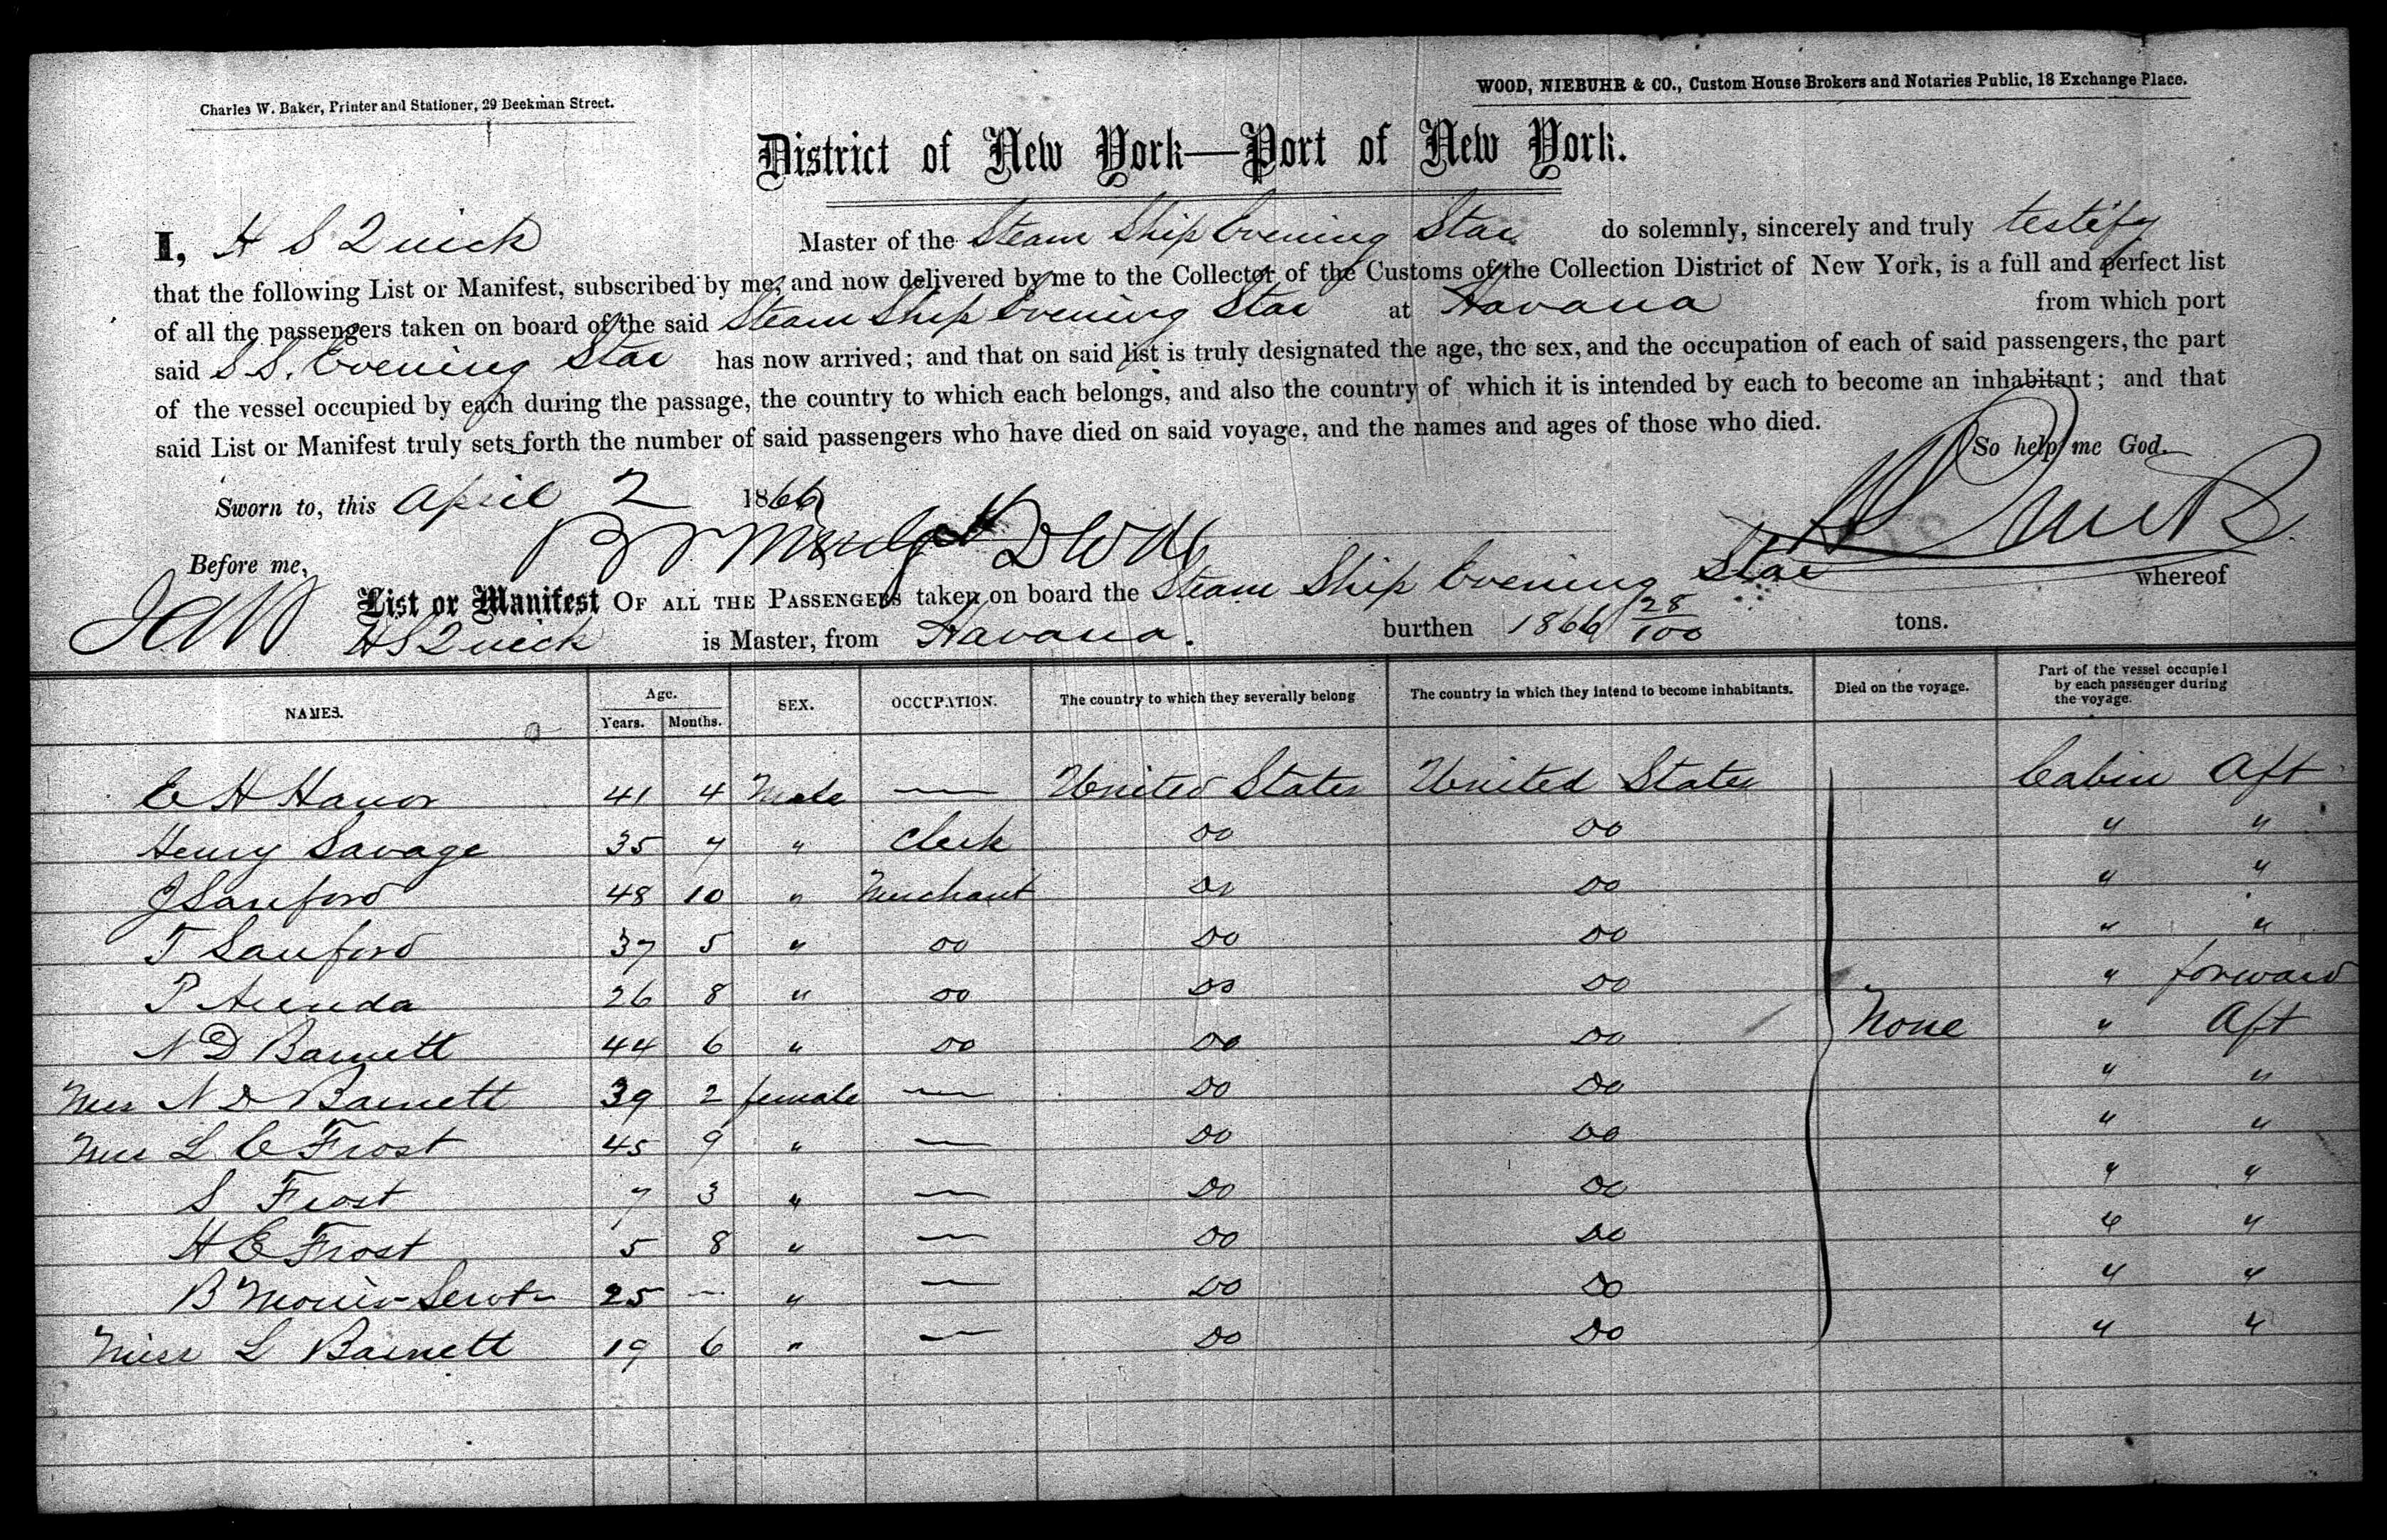 Charles W. Baker, Printer and Stationer, 29 Beekman Street.
WOOD, NIEBUHR & CO., Custom House Brokers and Notaries Public, 18 Exchange Place.
District of New York—Port of New York.
I, H S Quick Master of the Steam Ship Evening Star do solemnly, sincerely and truly testify
that the following List or Manifest, subscribed by me, and now delivered by me to the Collector of the Customs of the Collection District of New York, is a full and perfect list
of all the passengers taken on board of the said Steam Ship Evening Star at Havana from which port
said S S. Evening Star has now arrived; and that on said list is truly designated the age, the sex, and the occupation of each of said passengers, the part
of the vessel occupied by each during the passage, the country to which each belongs, and also the country of which it is intended by each to become an inhabitant; and that
said List or Manifest truly sets forth the number of said passengers who have died on said voyage, and the names and ages of those who died.
So help me God.
Sworn to, this April 2 1866
H S Quick
Before me,
List or Manifest OF ALL THE PASSENGERS taken on board the Steam Ship Evening Star whereof
H S Quick is Master, from Havana. burthen 1866 28/100 tons.
NAMES. Age. Years. Months. SEX. OCCUPATION. The country to which they severally belong The country in which they intend to become inhabitants. Died on the voyage. Part of the vessel occupied by each passenger during the voyage.
E H Hanor 41 4 Male — United States United States Cabin Aft
Henry Savage 35 7 " Clerk Do Do " "
J Sanford 48 10 " Merchant Do Do " "
T Sanford 37 5 " Do Do Do " "
P 26 8 " Do Do Do " forward
N D Barnett 44 6 " Do Do Do None " Aft
Mrs N D Barnett 39 2 female — Do Do " "
Mrs L C Frost 45 9 " — Do Do " "
S Frost 7 3 " — Do Do " "
H E Frost 5 8 " — Do Do " "
B Morris Servt 25 — " — Do Do " "
Miss L Barnett 19 6 " — Do Do " "